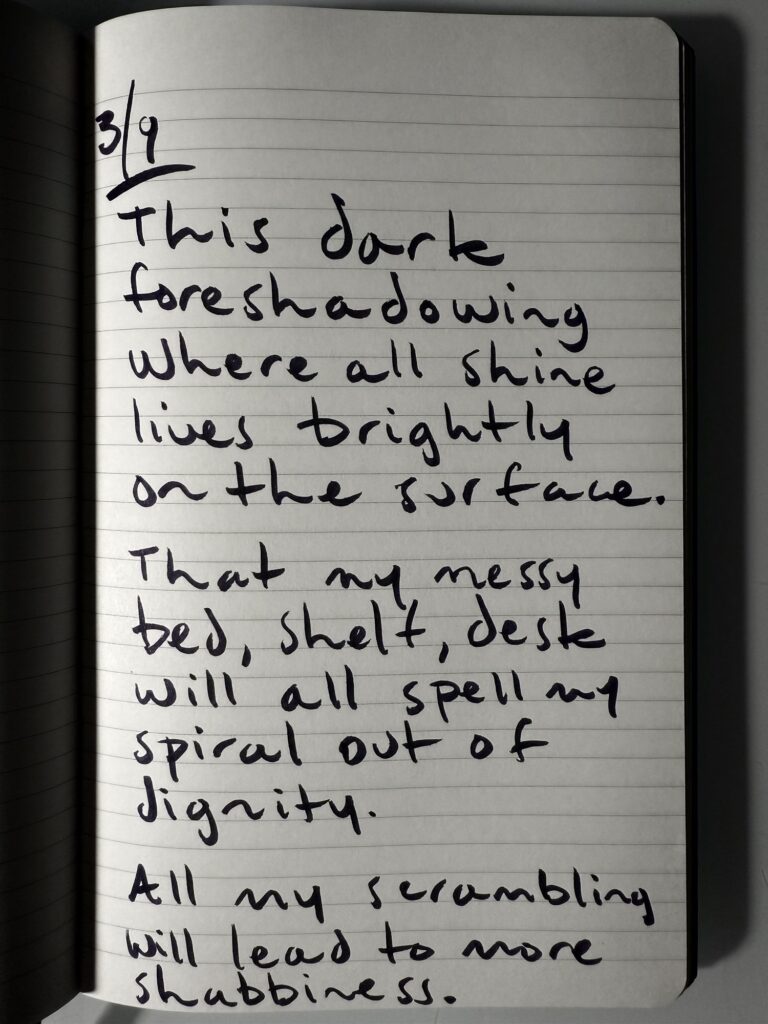 3/9
This dark
foreshadowing
where all shine
lives brightly
on the surface.
That my messy
bed, shelf, desk
will all spell my
spiral out of
dignity.
All my scrambling
will lead to more
shabbiness.